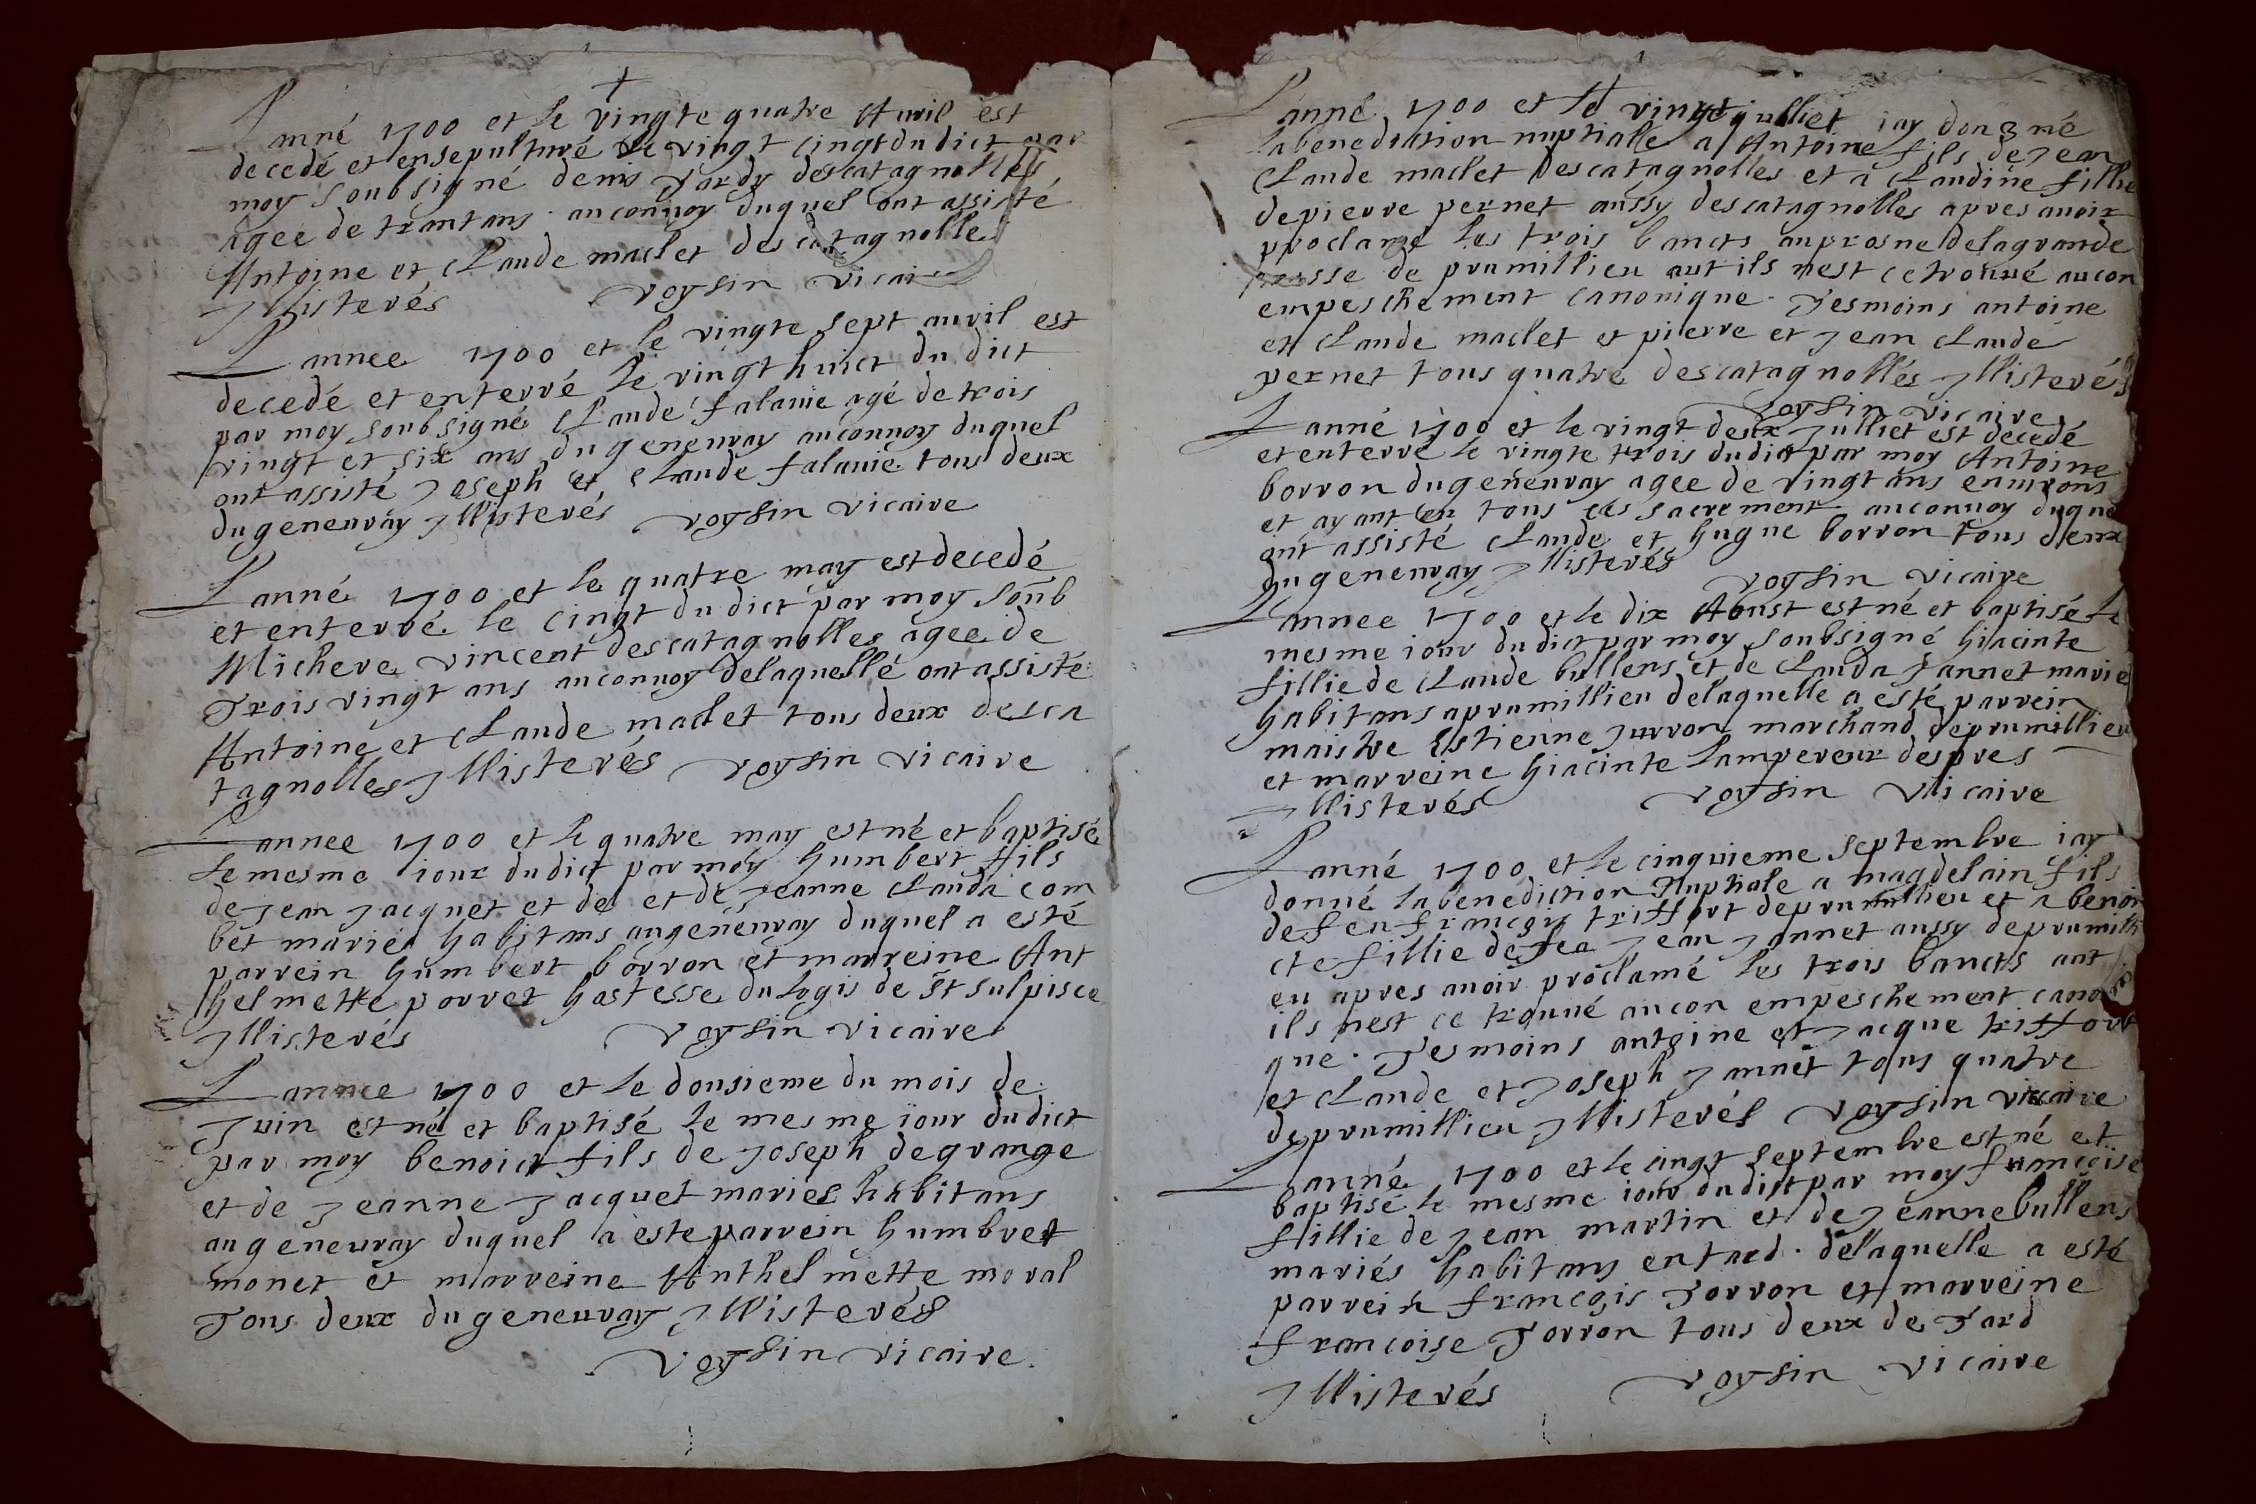 Lanné 1700 et le vingte quatre Auril est
decedé et ensepulturé le vingt cingt du dict par
moy soubsigné denis Jardy descatagnolles
agee de trant ans auconuoy duquel ont assisté
Antoine et Claude maclet des catagnolle
Illisterés voysin vicaire
Lannee 1700 et le vingte sept auril est
decedé et enterré le vingt huict du dict
par moy soubsigné Claude falauie agé de trois
vingt et six ans du geneuray auconuoy duquel
ont assisté Joseph et Claude falauie tous deux
du geneuray Illisterés voysin vicaire
Lanné 1700 et le quatre may est decedé
et enterré le cingt du dict par moy soub
Michere vincent descatagnolles agee de
Trois vingt ans auconuoy delaquellé ont assisté
Antoine et Claude maclet tous deux desca
tagnolles Illisterés voysin vicaire
Lannee 1700 et le quatre may est né et baptisé
le mesme iour du dict par moy humbert fils
de Jean Jacquet et de et de Jeanne Clauda com
bet mariés habitans augeneuray duquel a esté
parrein humbert borron et marreine Ant
helmette porret hastesse du logis de st sulpisce
Illisterés voysin vicaire
Lannee 1700 et le dousieme du mois de
Juin est né et baptisé le mesme iour du dict
par moy benoict fils de Joseph degrange
et de Jeanne Jacquet mariés habitans
au geneuray duquel a este parrein humbret
monet et marreine Anthelmette moral
Tous deux du geneuray Illisterés
voysin vicaire
Lanné 1700 et le vingt jullet iay donné
la benediction nuptialle a Antoine fils de Jean
Claude maclet descatagnolles et a Claudine fillie
de pierre pernet aussy descatagnolles apres auoir
proclamé les trois bancts auprosne delagrande
messe de prumillieu aut ils nest ce trouué aucon
empeschement canonique. Tesmoins antoine
et Claude maclet et pierre et Jean Claude
pernet tous quatre descatagnollés Illisterés
voysin vicaire
Lanné 1700 et le vingt deux Julliet est decedé
et enterré le vingte trois du dict par moy Antoine
borron du geneuray agee de vingt ans enuirons
et ayant eu tous cés sacrement auconuoy duquel
ont assisté Claude et hugue borron tous deux
du geneuray Illisterés voysin vicaire
Lannee 1700 et le dix Aoust est né et baptisé le
mesme iour du dict par moy soubsigné hiacinte
fillie de Claude bullens et de Clauda Jannet marie
habitans a prumillieu delaquelle a esté parrein
maistre Estienne Jurron marchand de prumillieu
et marreine hiacinte Lampereur despres
Illisterés voysin vicaire
Lanné 1700 et le cinquieme septembre iay
donné la benediction Nuptiale a magdelain fils
de feu françois triffort de prumillieu et a benoi
cte fillie de feu Jean Jannet aussy deprumilli
eu apres auoir proclamé les trois bancts aut
ils nest ce trouué aucon empeschement canoni
que. Tesmoins antoine et Jacque triffort
et Claude et Joseph Jannet tous quatre
de prumillieu Illisterés voysin vicaire
Lanné 1700 et le cingt septembre est né et
baptisé le mesme iour du dict par moy françoise
fillie de Jean martin et de Jeanne bullens
mariés habitans entard. delaquelle a esté
parrein françois Torron et marreine
françoise Torron tous deux de Tard
Illisterés voysin vicaire